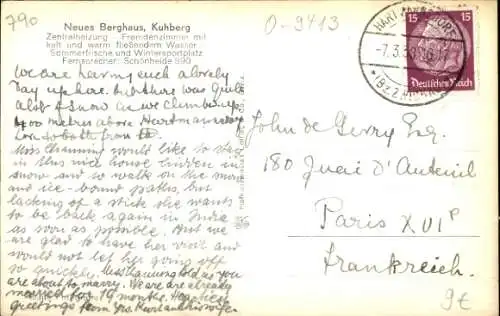 790
Neues Berghaus, Kuhberg
Zentralheizung - Fremdenzimmer mit
kalt und warm fließendem Wasser
Sommerfrische und Wintersportplatz
Fernsprecher: Schönheide 890
O-9413
15 15
Deutsches Reich
-7.3.38
We are having such a lovely
day up here. there was quite
a lot of snow as we climbed up
400 metres above Hartmannsdorf
Love to both from
Miss Channing would like to stay
in this nice house hidden in
snow and to walk on the snow
and ice-bound paths, but
lacking of a stick she wants
to be back again in
as soon as possible. But we
are glad to have her visit and
would not let her going off
so quickly. Miss Channing told us you
are about to marry. We are already
married for 19 months. Heartiest
greetings from
John de Gerry Esq.
180 Quai d'Auteuil
Paris XVIe
Frankreich.
9€